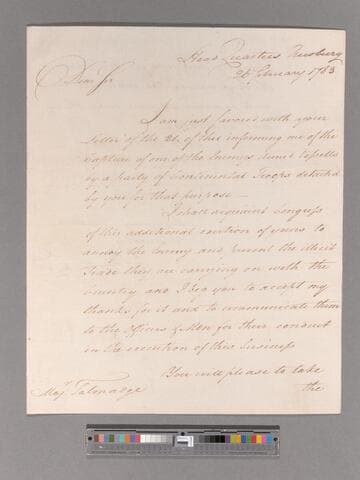 Head Quarters Newburg
26 February 1783
Dear Sir
I am just favored with your
Letter of the 21. of this informing me of the
capture of one of the Enemys armed Vessells
by a party of Continental Troops detached
by you for that purpose —
I shall acquaint Congress
of this additional exertion of yours to
annoy the Enemy and prevent the illicit
Trade they are carrying on with the
Country and I beg you to accept my
thanks for it and to communicate them
to the Officers & Men for their conduct
in the execution of this business
You will please to take
the
Majr Talmadge